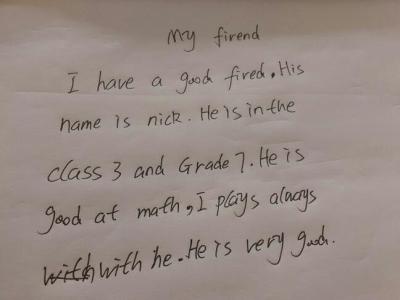 My firend
I have a good fired. His
name is nick. He is in the
class 3 and Grade 7. He is
good at math, I plays always
with with he. He is very good.